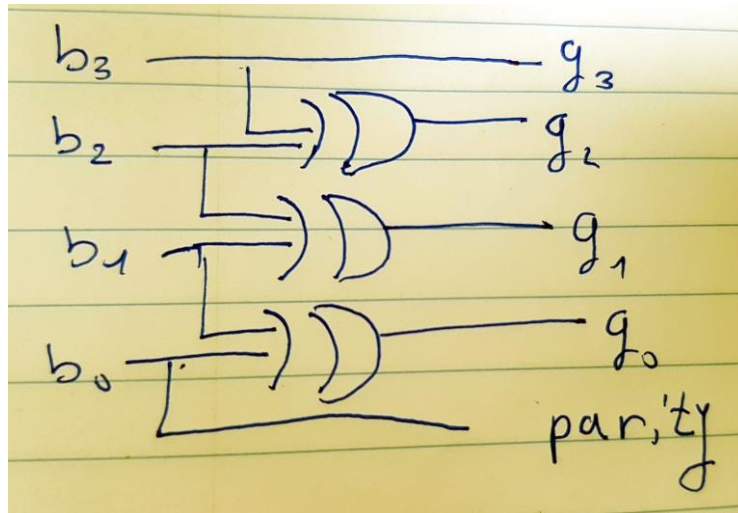 b3 g3
b2 g2
b1 g1
b0 g0
parity